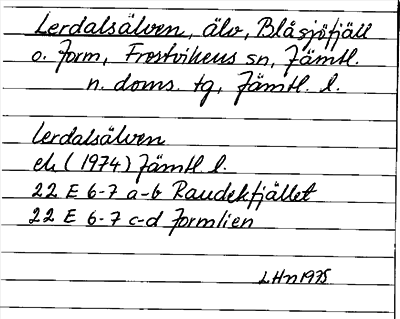 Lerdalsälven, älv, Blåsjöfjäll
o. Jorm, Frostvikens sn, Jämtl.
n. doms. tg, Jämtl. l.
Lerdalsälven
ek (1974) Jämtl l.
22 E 6-7 a-b Raudekfjället
22 E 6-7 c-d Jormlien
LHn 1975